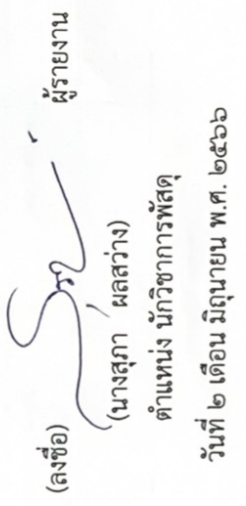 (ลงชื่อ) ผู้รายงาน
(นางสุภา ผลสว่าง)
ตำแหน่ง นักวิชาการพัสดุ
วันที่ ๒ เดือน มิถุนายน พ.ศ. ๒๕๖๖